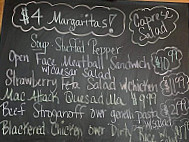 $4 Margaritas!
Caprese
Salad
Soup Stuffed Pepper
Open Face Meatball Sandwich
w/caesar Salad
Strawberry Feta Salad w/chicken
Mac Attack Quesadilla $9.99
Beef Stroganoff over
Blackened Chicken over Dirty Rice